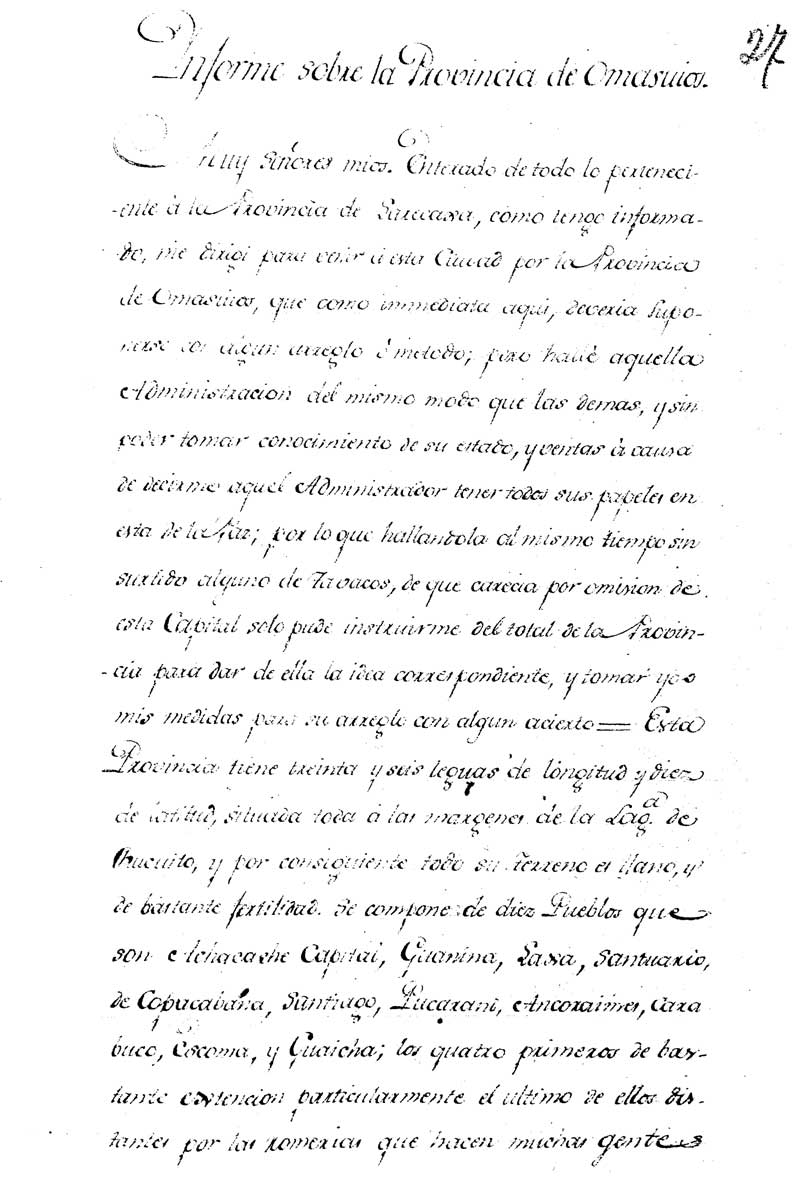 27
Informe sobre la Provincia de Omasuios.
Muy Señores mios. Enterado de todo lo perteneci-
-ente à la Provincia de Larecaxa, como tengo informa-
do, me dirigi para venir à esta Ciudad por la Provincia
de Omasuios, que como immediata aqui, deveria supo-
nerse con algun arreglo ò metodo; pero hallè aquella
Administracion del mismo modo que las demas, y sin
poder tomar conocimiento de su estado, y ventas à causa
de decirme aquel Administrador tener todos sus papeles en
esta de la Paz; por lo que hallandola al mismo tiempo sin
surtido alguno de Tavacos, de que carecia por omision de
esta Capital solo pude instruirme del total de la Provin-
-cia para dar de ella la idea correspondiente, y tomar yo
mis medidas para su arreglo con algun acierto = Esta
Provincia tiene treinta y seis leguas de longitud y diez
de latitud, situada toda à las margenes de la Lag.a de
Chucuito, y por consiguiente todo su terreno es llano, y
de bastante fertilidad. Se compone de diez Pueblos que
son Achacache Capital, Guarina, Laxa, Santuario,
de Copacabana, Santiago, Pucarani, Ancoraimes, Cara
buco, Escoma, y Guaicha; los quatro primeros de bas-
tante extencion particularmente el ultimo de ellos dis-
tantes por las romerias que hacen muchas gentes